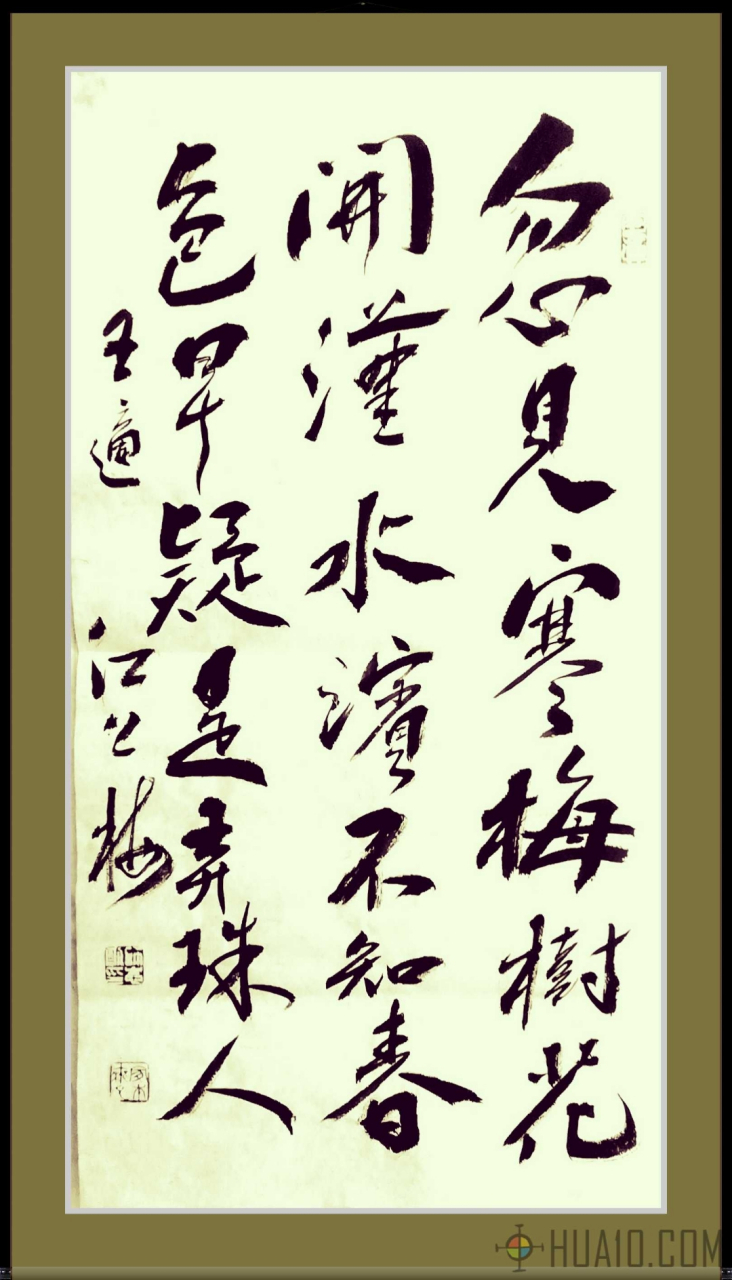 忽見寒梅樹花
開漢水濱不知春
色早疑是弄珠人
王適 江梅
HUA10.COM